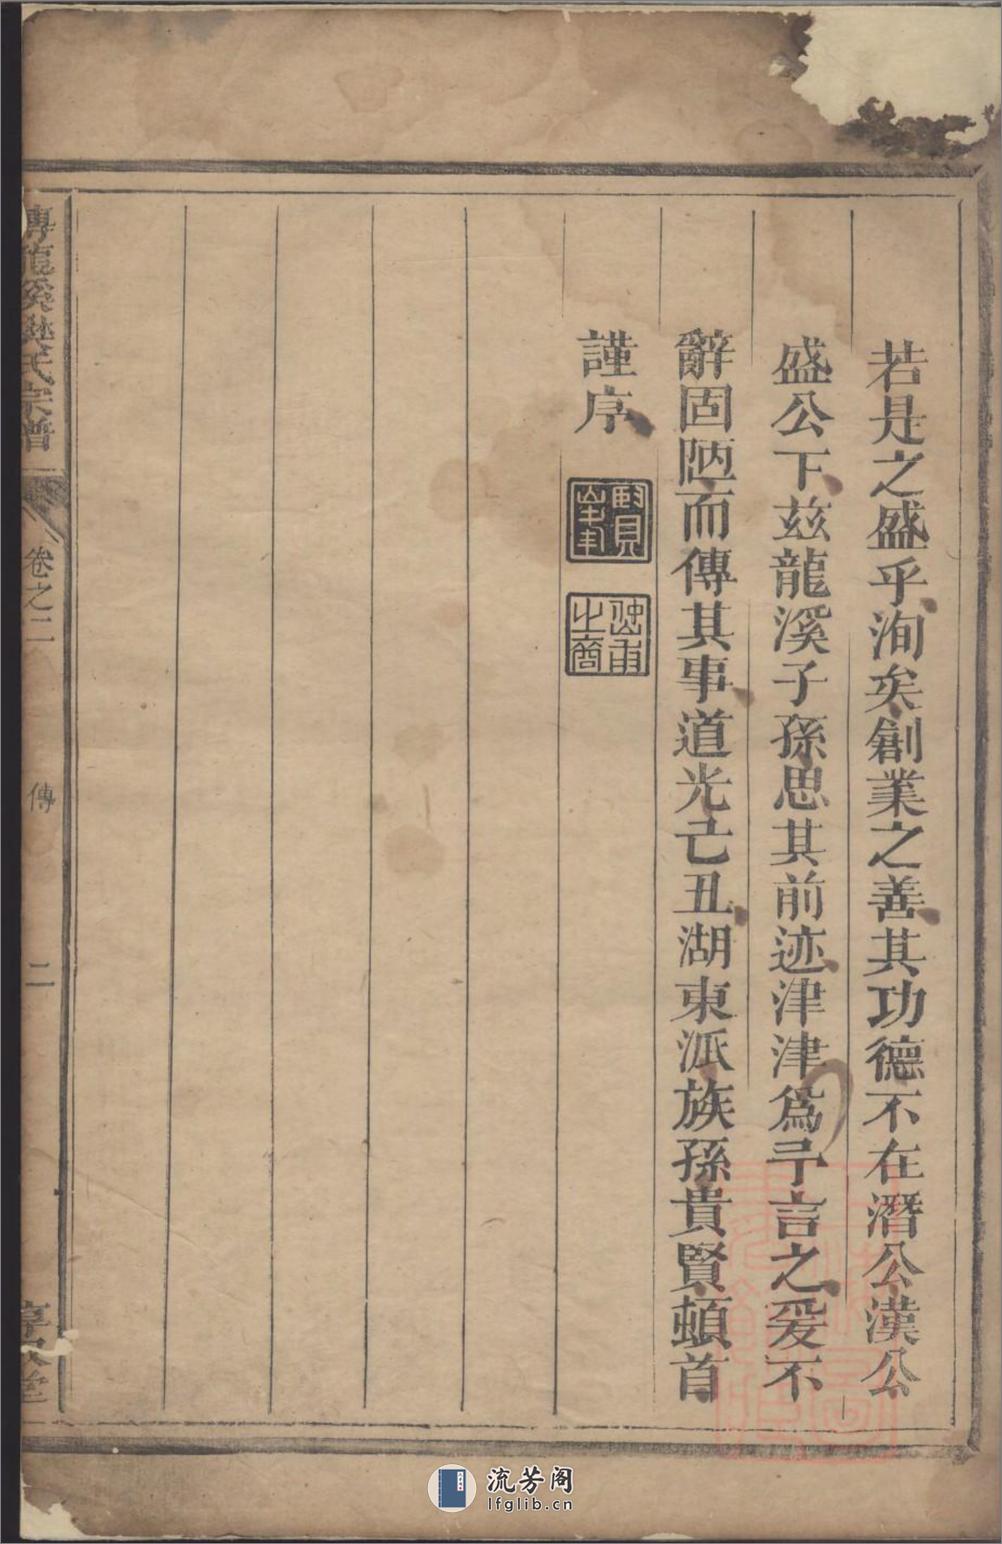 若是之盛乎洵矣創業之善其功德不在潛公漢公
盛公下玆龍溪子孫思其前迹津津爲予言之爰不
辭固陋而傳其事道光己丑湖東派族孫貴賢頓首
謹序
傳龍溪樊氏宗譜
卷之二
傳
二
堂
流芳阁
lfglib.cn